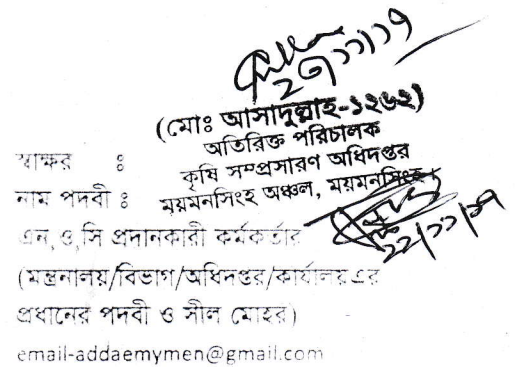 ২৩/১১/১৭
(মোঃ আসাদুল্লাহ-১২৬২)
অতিরিক্ত পরিচালক
কৃষি সম্প্রসারণ অধিদপ্তর
ময়মনসিংহ অঞ্চল, ময়মনসিংহ।
স্বাক্ষর ঃ
নাম পদবী ঃ
এন,ও,সি প্রদানকারী কর্মকর্তার
(মন্ত্রনালয়/বিভাগ/অধিদপ্তর/কার্যালয় এর
প্রধানের পদবী ও সীল মোহর)
email-addaemymen@gmail.com